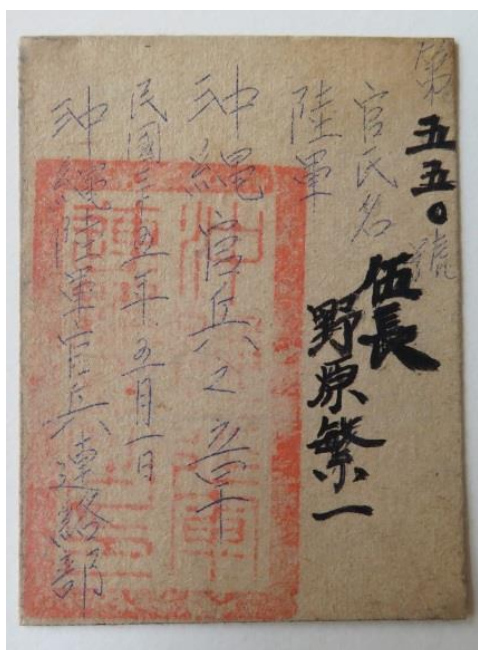 第五五〇號
官氏名
陸軍 伍長 野原繁一
沖縄官兵之
民國三十五年五月一日
沖縄陸軍官兵連絡部